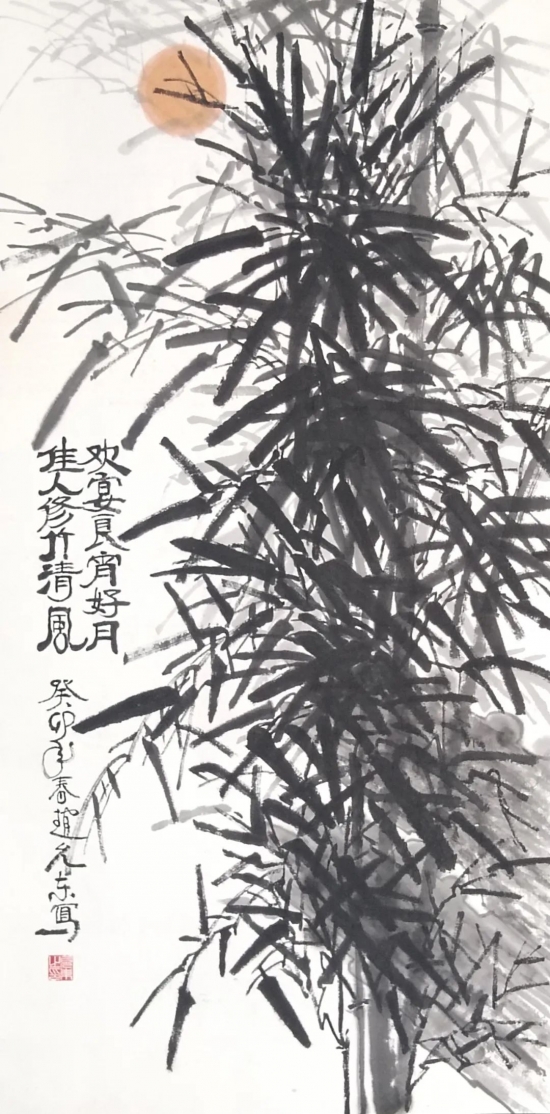 欢宴良宵好月
佳人修竹清风
癸卯年春赵允东写